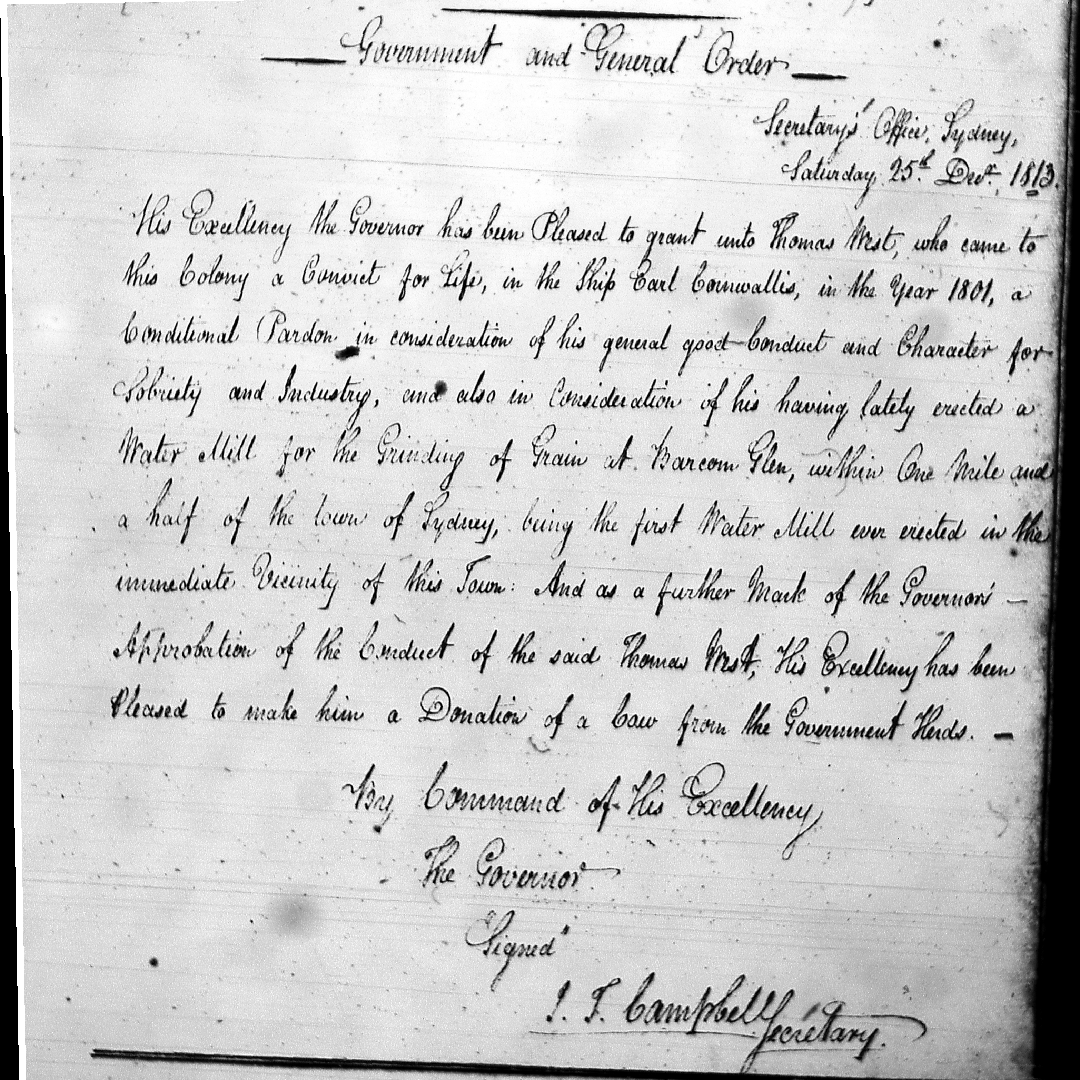 Government and General Order
Secretary's Office, Sydney,
Saturday 25th Decr. 1813.
His Excellency the Governor has been Pleased to grant unto Thomas West, who came to
this Colony a Convict for Life, in the Ship Earl Cornwallis, in the Year 1801, a
Conditional Pardon in consideration of his general good Conduct and Character for
Sobriety and Industry, and also in Consideration of his having lately erected a
Water Mill for the Grinding of Grain at Barcom Glen, within One Mile and
a half of the town of Sydney, being the first Water Mill ever erected in the
immediate Vicinity of this Town: And as a further Mark of the Governors' —
Approbation of the Conduct of the said Thomas West, His Excellency has been
Pleased to make him a Donation of a Cow from the Government Herds. —
By Command of His Excellency
The Governor
"Signed"
J. T. Campbell Secretary.